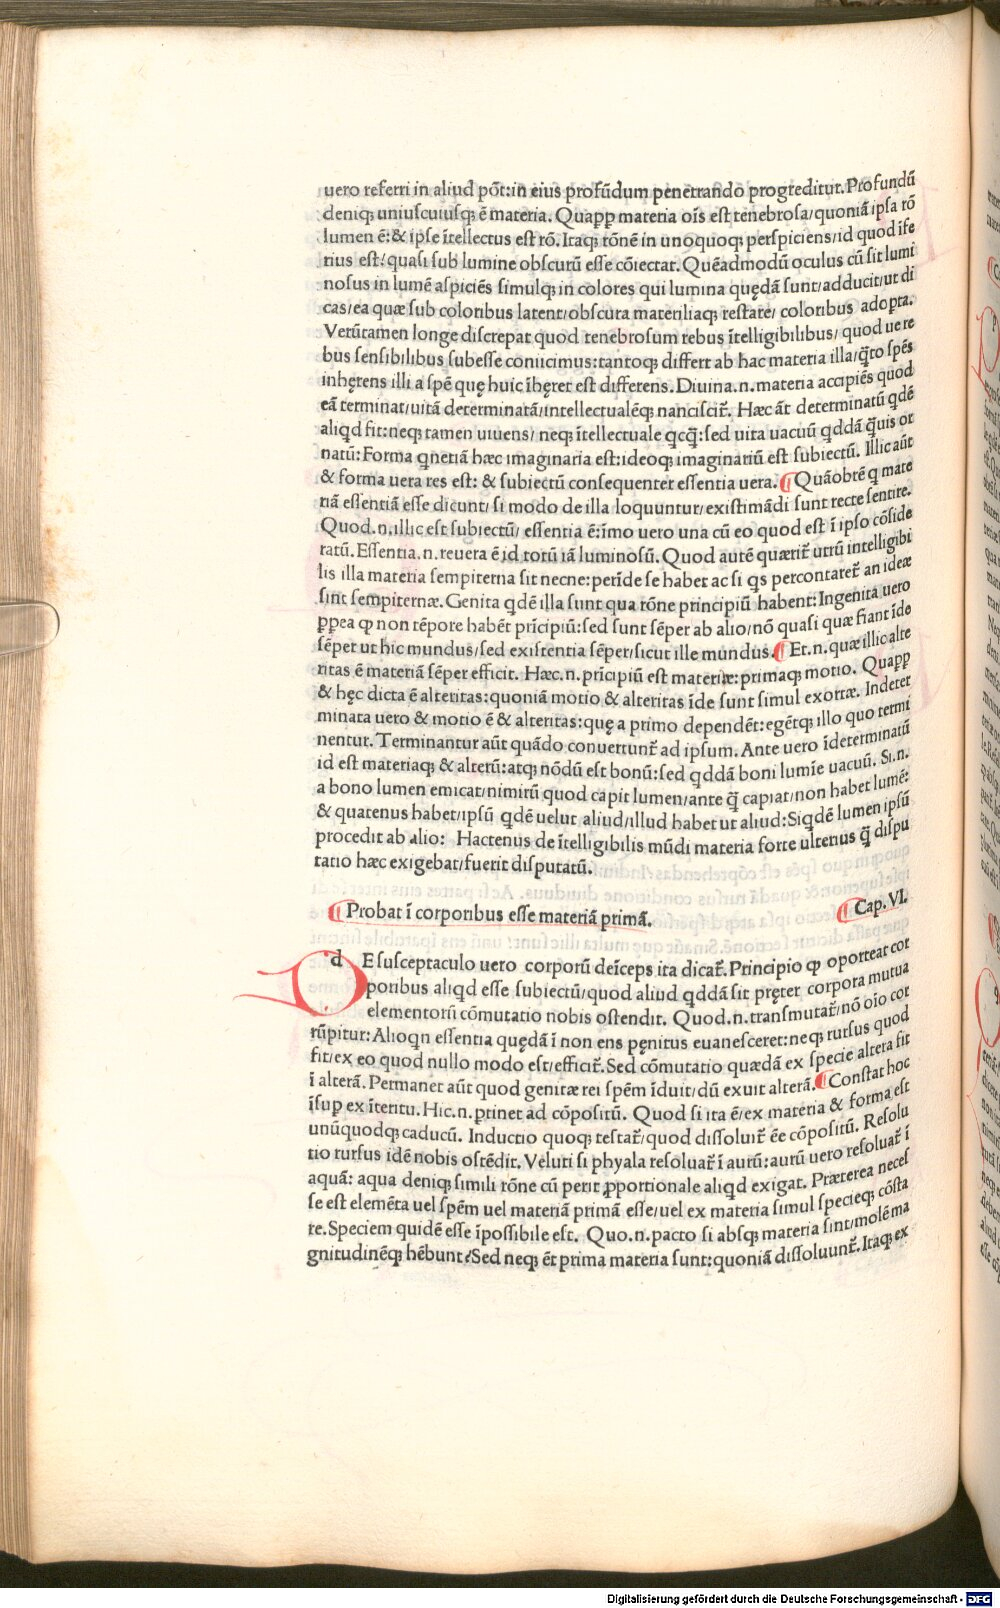 uero referri in aliud põt:in eius profũdum penetrando progreditur. Profundũ
deniqꝫ uniuscuiusqꝫ ẽ materia. Quaꝓꝑ materia oĩs est tenebrosa/quoniã ipsa rõ
lumen ẽ:& ipse ĩtellectus est rõ. Itaqꝫ rõnẽ in unoquoqꝫ perspiciens/id quod ĩfe
rius est/quasi sub lumine obscurũ esse cõiectat. Quẽadmodũ oculus cũ sit lumi
nosus in lumẽ aspiciẽs simulqꝫ in colores qui lumina quędã sunt/adducit/ut di
cas/ea quæ sub coloribus latent/obscura materiliaqꝫ restate/ coloribus adopta.
Verũtamen longe discrepat quod tenebrosum rebus ĩtelligibilibus/ quod ue re
bus sensibilibus subesse coniicimus:tantoqꝫ differt ab hac materia illa/q̃to spẽs
inhęrens illi a spẽ quę huic ĩhęret est differens. Diuina.n.materia accipiẽs quod
eã terminat/uitã determinatã/intellectualẽqꝫ nanciscit̃. Hæc ãt determinatũ qdẽ
aliqd fit:neqꝫ tamen uiuens/ neqꝫ ĩtellectuale qcq̃:sed uita uacuũ qddã q̃uis or
natũ: Forma qnetiã hæc imaginaria est:ideoqꝫ imaginariũ est subiectũ. Illic aũt
& forma uera res est: & subiectũ consequenter essentia uera. ¶ Quãobrẽ q mate
riã essentiã esse dicunt/ si modo de illa loquuntur/existimãdi sunt recte sentire.
Quod.n.illic est subiectũ/ essentia ẽ:ĩmo uero una cũ eo quod est ĩ ipso cõside
ratũ. Essentia.n.reuera ẽ id totũ iã luminosũ. Quod autẽ quærit̃ utrũ intelligibi
lis illa materia sempiterna sit necne:perĩde se habet ac si qs percontaret̃ an ideæ
sint sempiternæ. Genita qdẽ illa sunt qua rõne principiũ habent: Ingenita uero
ꝓꝑea ꝙ non tẽpore habẽt prĩcipiũ:sed sunt sẽper ab alio/nõ quasi quæ fiant ĩde
sẽper ut hic mundus/sed existentia sẽper/sicut ille mundus. ¶ Et.n.quæ illic alte
ritas ẽ materiã sẽper efficit. Hæc.n.prĩcipiũ est materiæ:primaqꝫ motio. Quaꝓꝑ
& hęc dicta ẽ alteritas:quoniã motio & alteritas ĩde sunt simul exortæ. Indeter
minata uero & motio ẽ & alteritas:quę a primo dependẽt:egẽtqꝫ illo quo termi
nentur. Terminantur aũt quãdo conuertunt̃ ad ipsum. Ante uero ĩdeterminatũ
id est materiaqꝫ & alterũ:atqꝫ nõdũ est bonũ:sed qddã boni lumĩe uacuũ. Si.n.
a bono lumen emicat/nimirũ quod capit lumen/ante q̃ capiat/non habet lumẽ:
& quatenus habet/ipsũ qdẽ uelut aliud/illud habet ut aliud:Siqdẽ lumen ipsũ
procedit ab alio: Hactenus de ĩtelligibilis mũdi materia forte ulterius q̃ dispu
tatio hæc exigebat/fuerit disputatũ.
¶ Probat ĩ corporibus esse materiã primã. ¶ Cap. VI.
dE susceptaculo uero corporũ deĩceps ita dicat̃. Principio ꝙ oporteat cor
poribus aliqd esse subiectũ/quod aliud qddã sit pręter corpora mutua
elementorũ cõmutatio nobis ostendit. Quod.n.transmutat̃/nõ oĩo cor
rũpitur: Alioqn essentia quędã ĩ non ens pęnitus euanesceret:neqꝫ rursus quod
fit/ex eo quod nullo modo est/efficit̃. Sed cõmutatio quædã ex specie altera fit
ĩ alterã. Permanet aũt quod genitæ rei spẽm ĩduit/dũ exuit alterã. ¶ Constat hoc
ĩsuꝑ ex ĩteritu. Hic.n.ꝑtinet ad cõpositũ. Quod si ita ẽ/ex materia & forma est
unũquodqꝫ caducũ. Inductio quoqꝫ testat̃/quod dissoluit̃ ẽe cõpositũ. Resolu
tio rursus idẽ nobis ostẽdit. Veluti si phyala resoluat̃ ĩ aurũ:aurũ uero resoluat̃ ĩ
aquã: aqua deniqꝫ simili rõne cũ perit ꝓportionale aliqd exigat. Præterea neces
se est elemẽta uel spẽm uel materiã primã esse/uel ex materia simul specieqꝫ cõsta
re. Speciem quidẽ esse ĩpossibile est. Quo.n.pacto si absqꝫ materia sint/molẽ ma
gnitudinẽqꝫ hẽbunt? Sed neqꝫ ẽt prima materia sunt:quoniã dissoluunt̃. Itaqꝫ ex
Digitalisierung gefördert durch die Deutsche Forschungsgemeinschaft - DFG